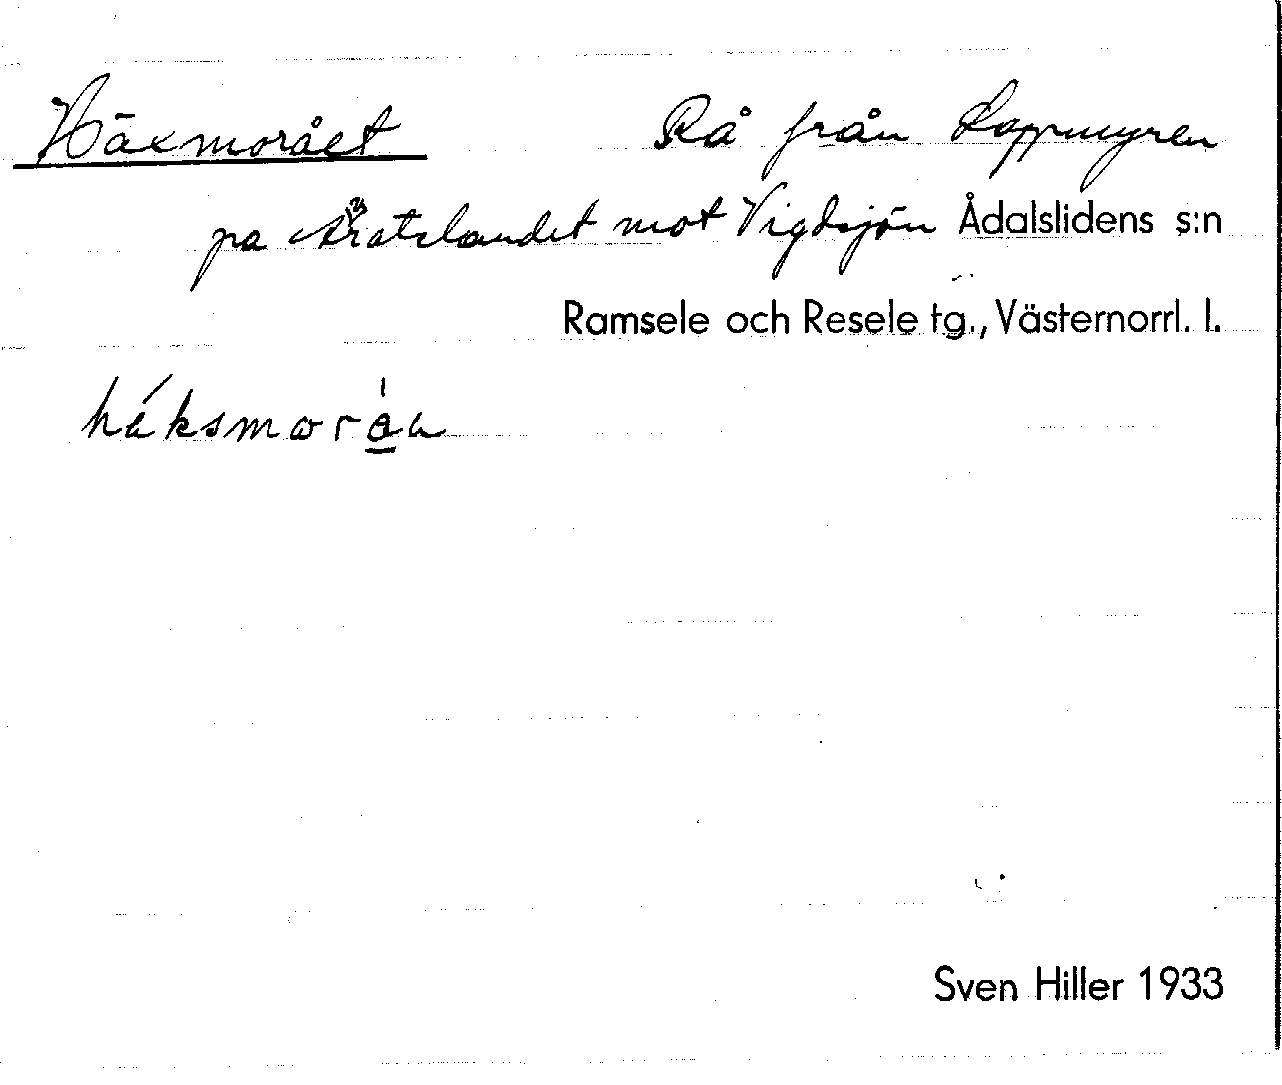 Häxmorået Rå från Lappmyren
på landet mot Vigdsjön Ådalslidens s:n
Ramsele och Resele tg., Västernorrl. l.
Sven Hiller 1933